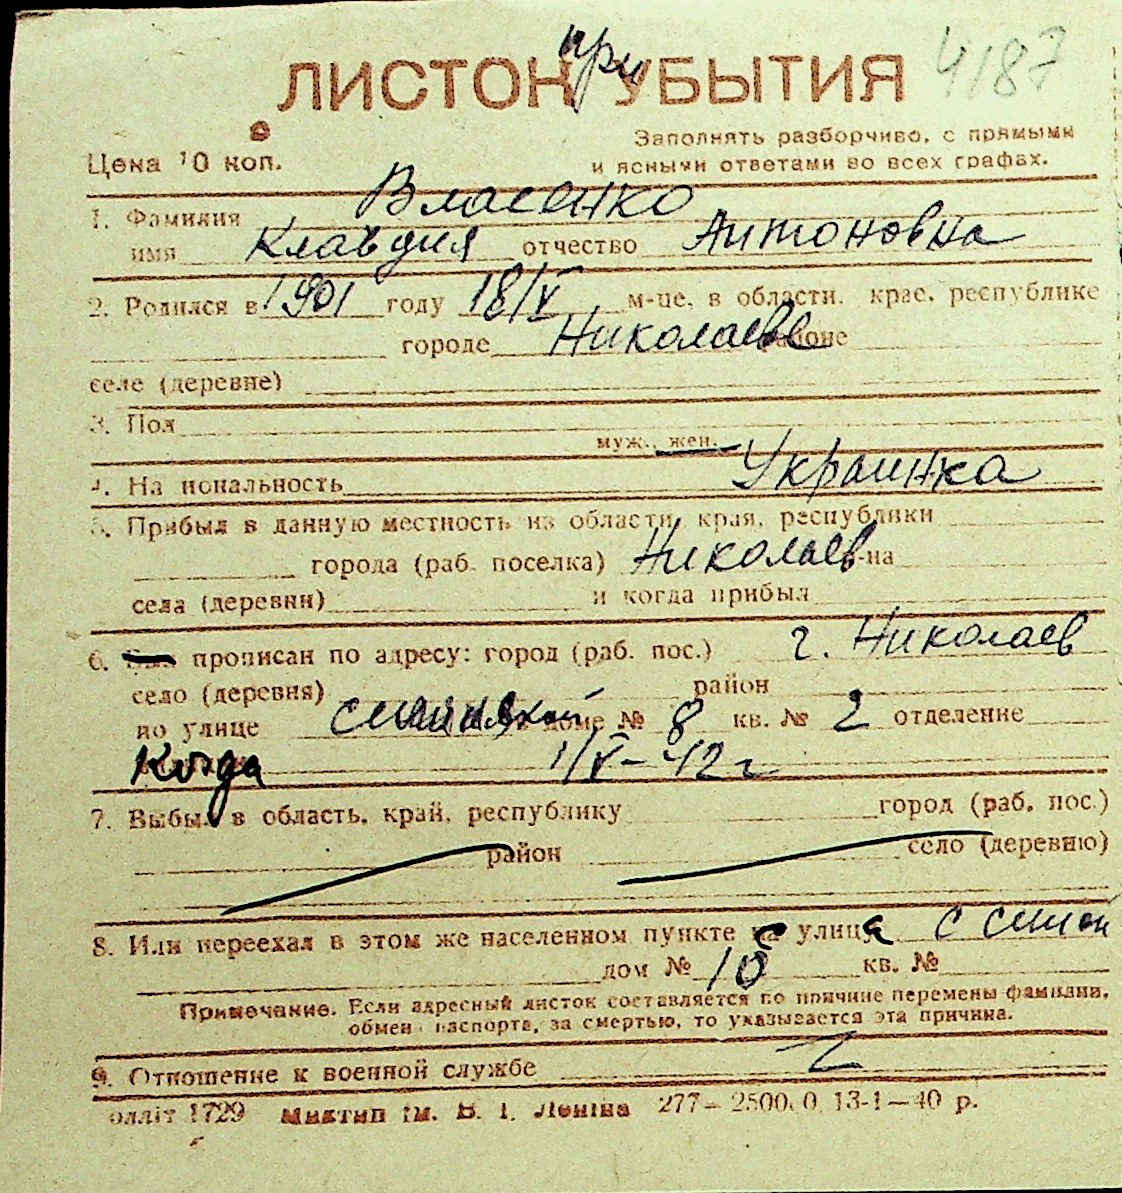 4187
при
ЛИСТОК УБЫТИЯ
Цена 10 коп.
Заполнять разборчиво, с прямыми
и ясными ответами во всех графах.
1. Фамилия Власенко
имя Клавдия отчество Антоновна
2. Родился в 1901 году 18/V м-це, в области, крае, республике
городе Николаеве районе
селе (деревне)
3. Пол муж., жен.
4. Национальность Украинка
5. Прибыл в данную местность из области, края, республики
города (раб. поселка) Николаев р-на
села (деревни) и когда прибыл
6. прописан по адресу: город (раб. пос.) г. Николаев
село (деревня) район
по улице в доме № 8 кв. № 2 отделение
Когда 1/V-42 г
7. Выбыл в область, край, республику город (раб. пос.)
район село (деревню)
8. Или переехал в этом же населенном пункте с улицы с
дом № 10 кв. №
Примечание. Если адресный листок составляется по причине перемены фамилии,
обмен паспорта, за смертью, то указывается эта причина.
9. Отношение к военной службе
олліт 1729 Миктип ім. В. І. Леніна 277—2500.0 13-1—40 р.